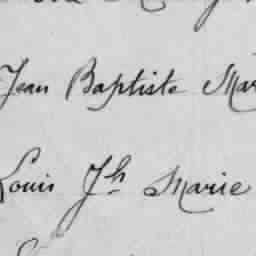 Jean Baptiste Mar
Louis Jh Marie